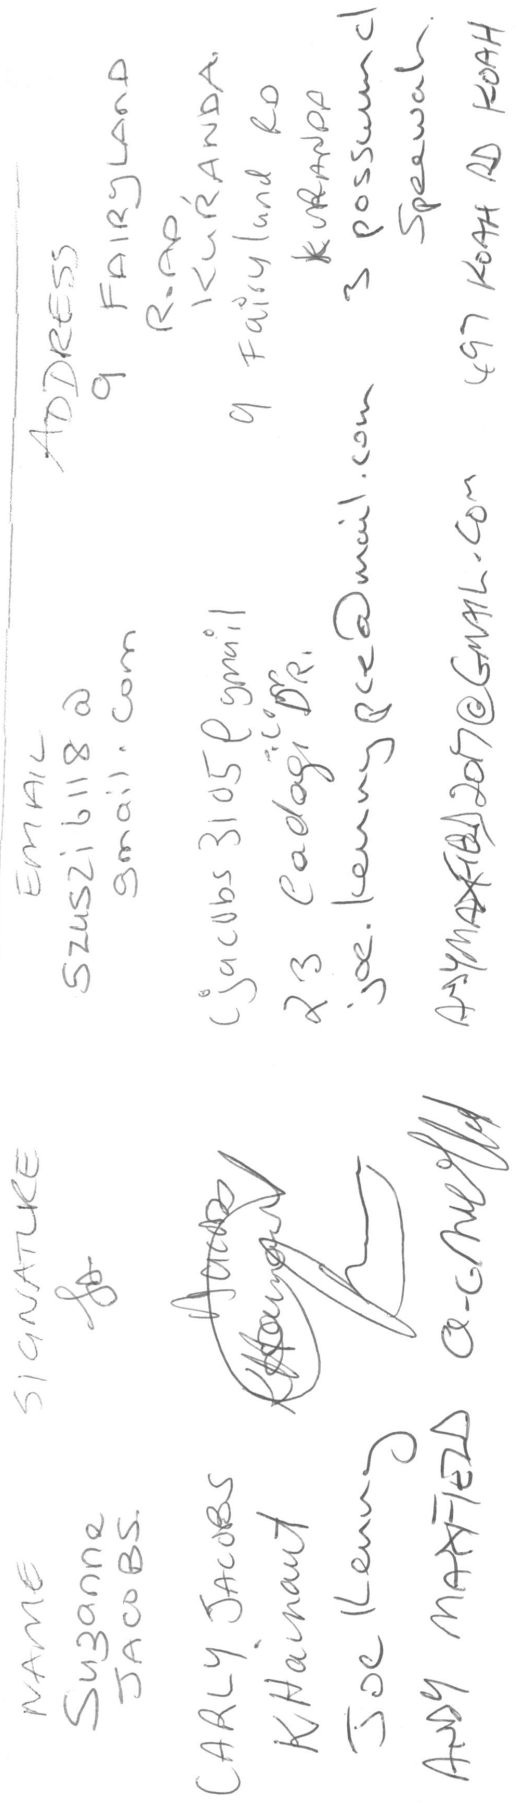 NAME SIGNATURE EMAIL ADDRESS
Suzanne szuszi6118@ 9 FAIRYLAND
JACOBS. gmail.com ROAD,
KURANDA.
CARLY JACOBS cjacobs3105@gmail 9 Fairyland RD
K Hainaut 23 Cadagi DR. KURANDA
Joe Kenny joe.kennypce@mail.com 3 possum cl
Speewah.
ANDY MAXFIELD ANDYMAXFIELD2017@GMAIL.COM 497 KOAH RD KOAH